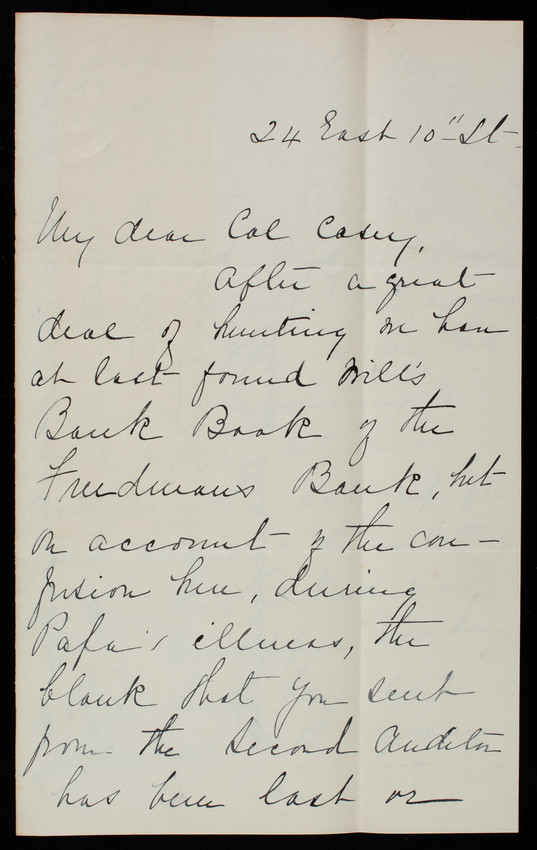 24 East 10" St-
My dear Col Casey,
After a great
deal of hunting we have
at last found Will's
Bank Book of the
Freedmans Bank, but
on account of the con-
fusion here, during
Papa's illness, the
blank that you sent
from the Second Auditor
has been lost or